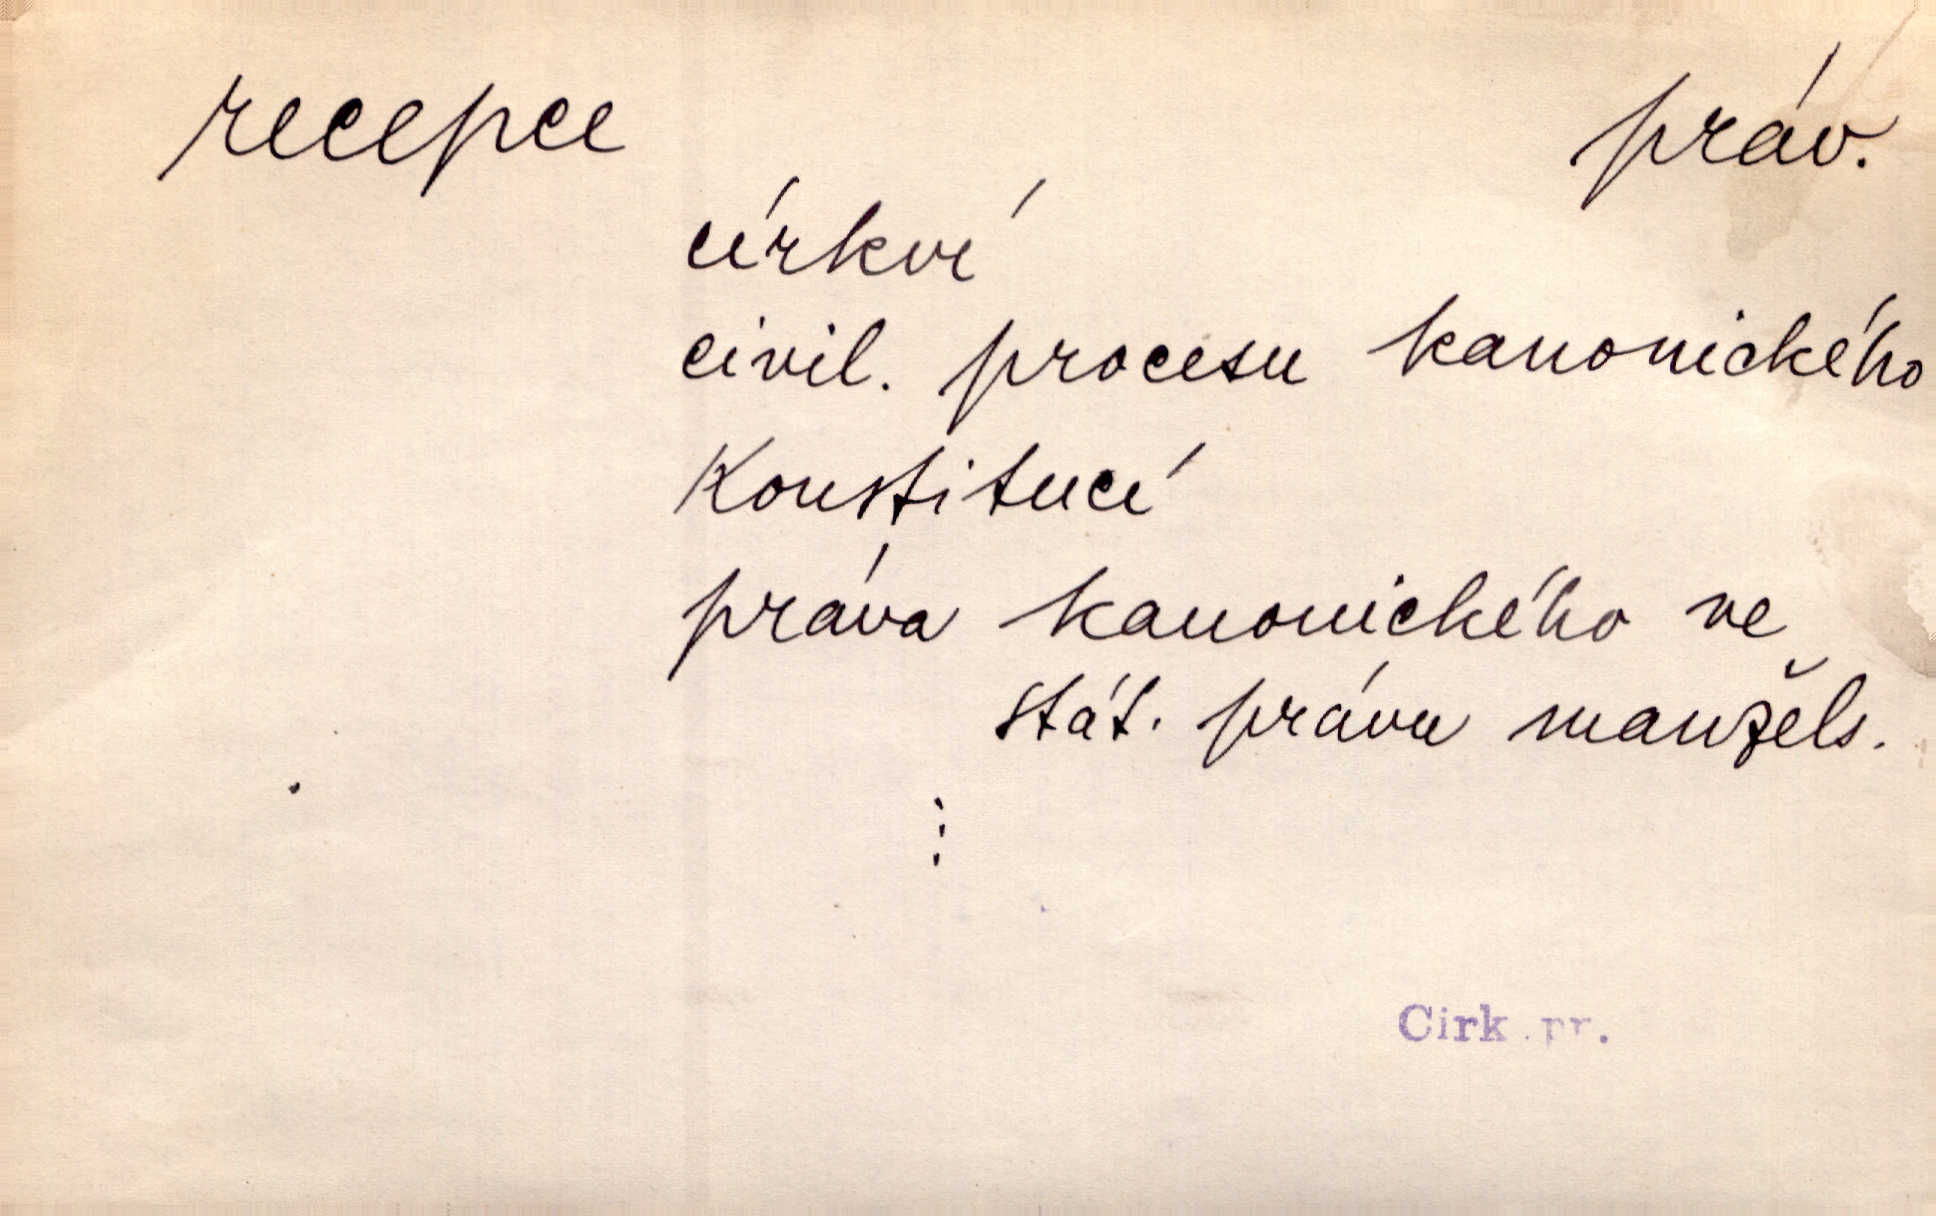 recepce práv.
církví
civil. procesu kanonického
Konstitucí
práva kanonického ve
stát. právu manžels.
⋮
Cirk. pr.